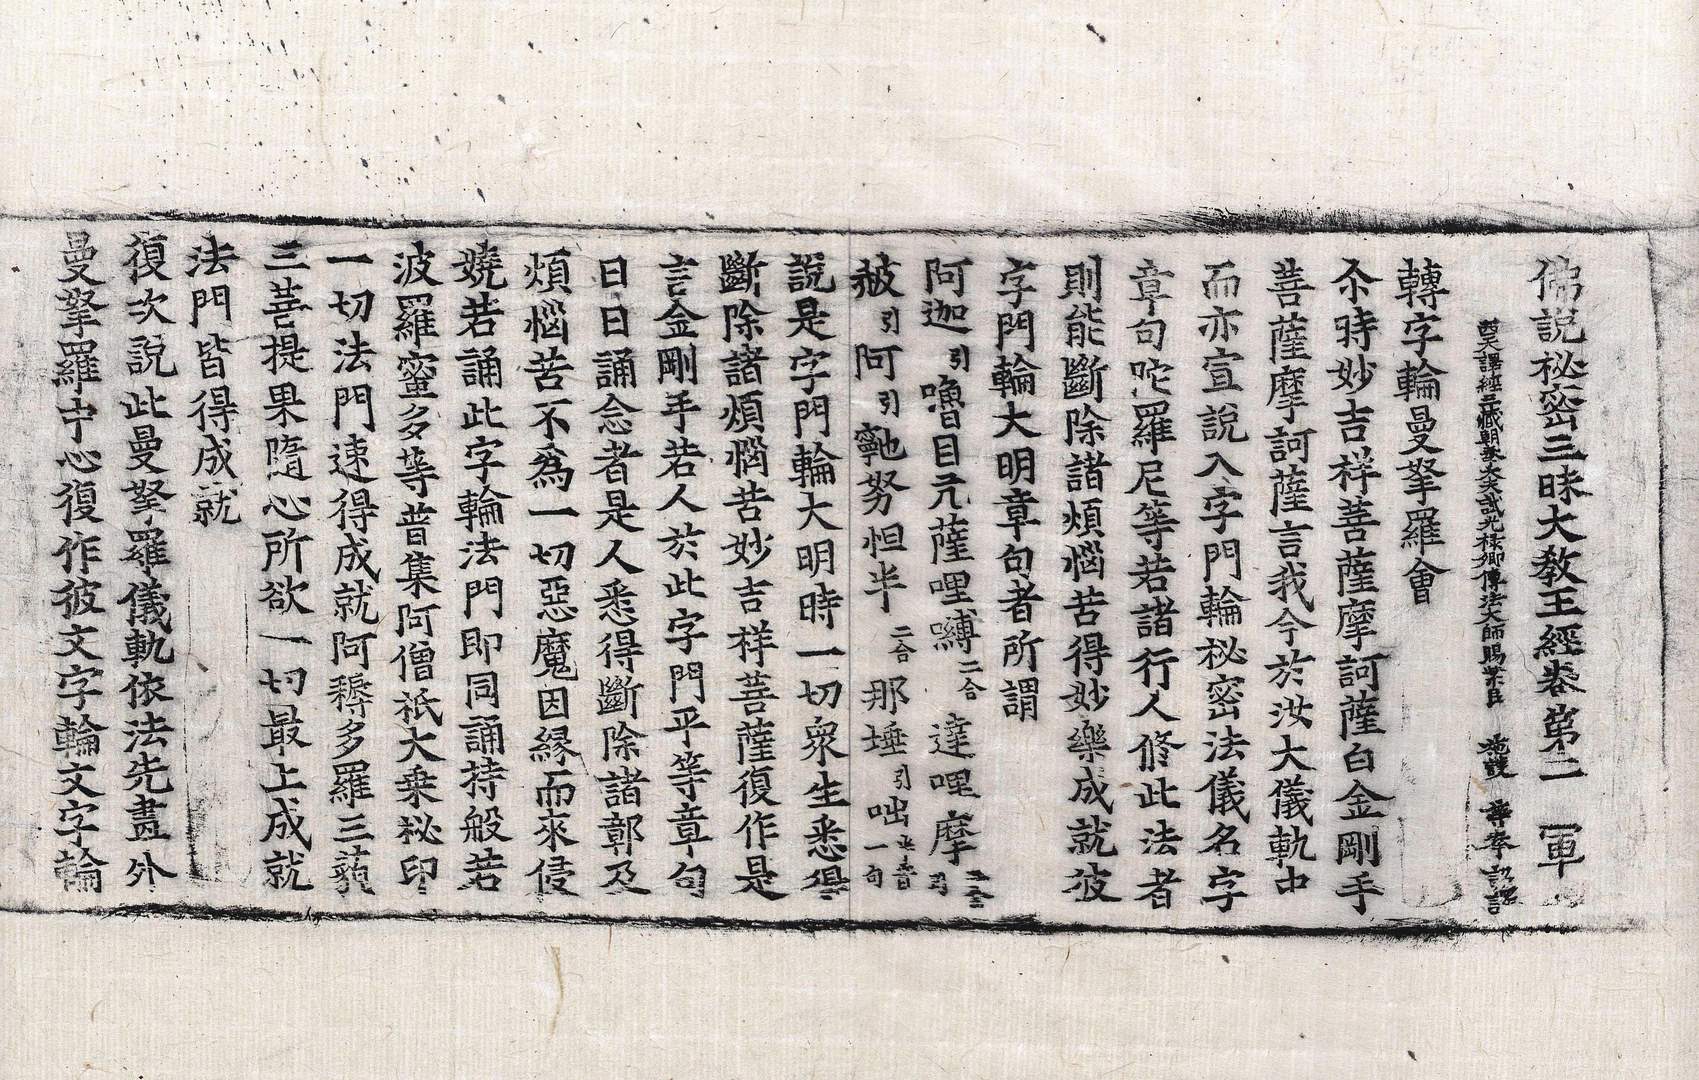 佛說秘密三昧大教王經卷第二　軍
西天譯經三藏朝奉大夫試光祿卿傳法大師賜紫臣　施護　等奉　詔譯
轉字輪曼拏羅會
尒時妙吉祥菩薩摩訶薩白金剛手
菩薩摩訶薩言我今於汝大儀軌中
而亦宣說入字門輪秘密法儀名字
章句陀羅尼等若諸行人修此法者
則能斷除諸煩惱苦得妙樂成就彼
字門輪大明章句者所謂
阿迦引嚕目亢薩哩嚩二合達哩摩二合引
赧引阿引䭾努怛半二合那埵引咄半音一句
說是字門輪大明時一切衆生悉得
斷除諸煩惱苦妙吉祥菩薩復作是
言金剛手若人於此字門平等章句
日日誦念者是人悉得斷除諸鄣及
煩惱苦不爲一切惡魔因縁而來侵
嬈若誦此字輪法門即同誦持般若
波羅蜜多等普集阿僧祇大乘秘印
一切法門速得成就阿耨多羅三藐
三菩提果隨心所欲一切最上成就
法門皆得成就
復次說此曼拏羅儀軌依法先畫外
曼拏羅中心復作彼文字輪文字輪